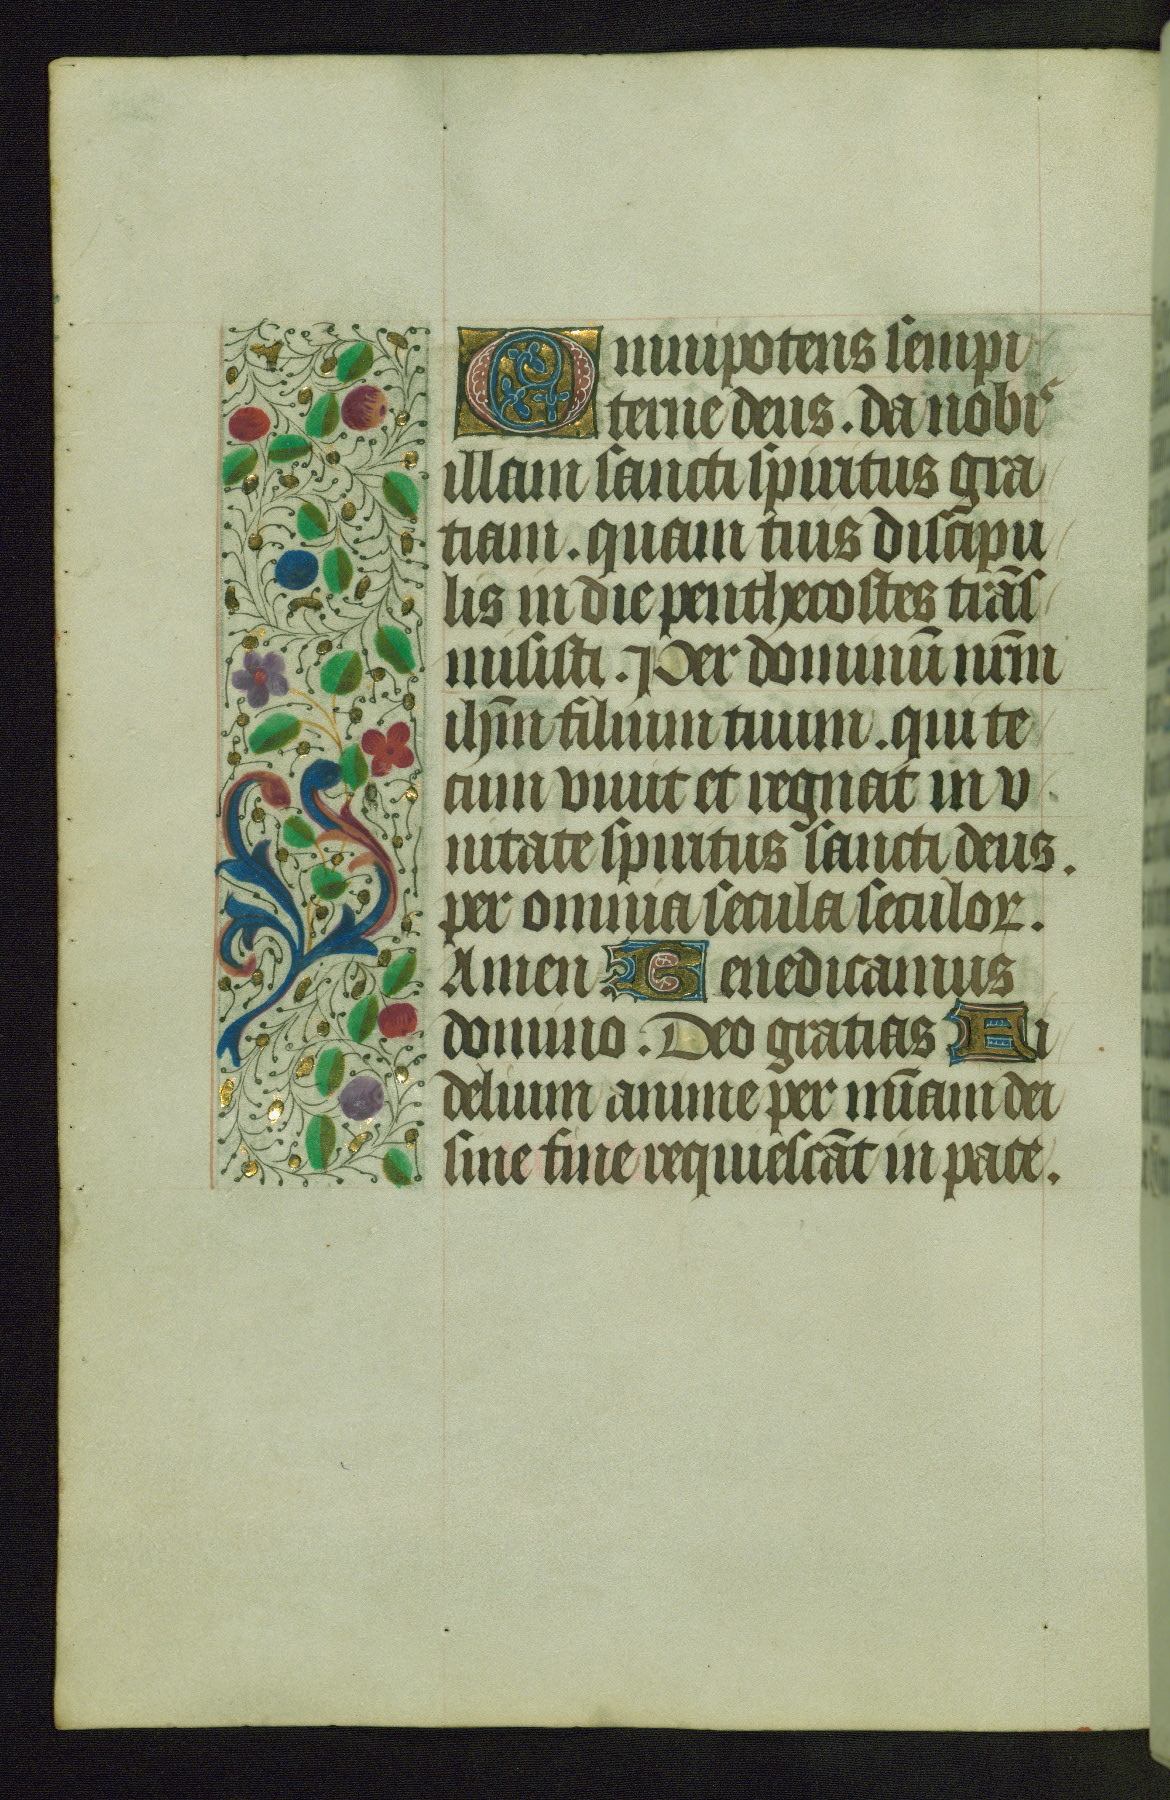 Omnipotens sempi
terne deus. da nobis
illam sancti spiritus gra
tiam. quam tuis discipu
lis in die penthecostes trās
misisti. Per dominū nr̄m
ihm̄ filium tuum. qui te
cum viuit et regnat in v
nitate spiritus sancti deus.
per omnia secula seculoꝝ.
Amen Benedicamus
domino. Deo gratias Fi
delium anime per mīam dei
sine fine requiescāt in pace.